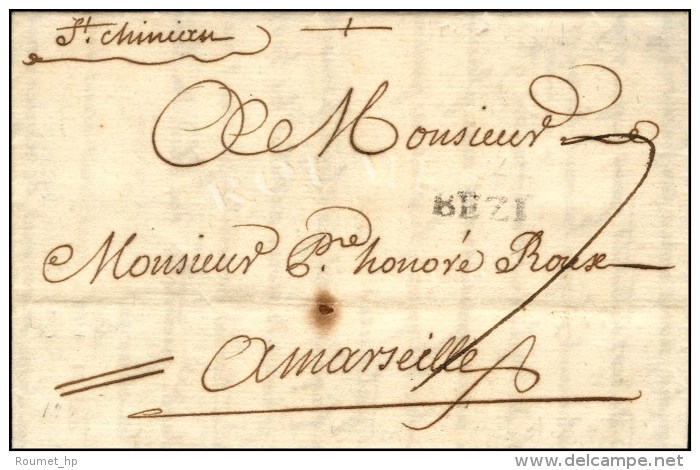 St. Chinian
A Monsieur
BEZI
Monsieur Pre. honoré Roux
Amarseille
Roumet_hp
delcampe.net